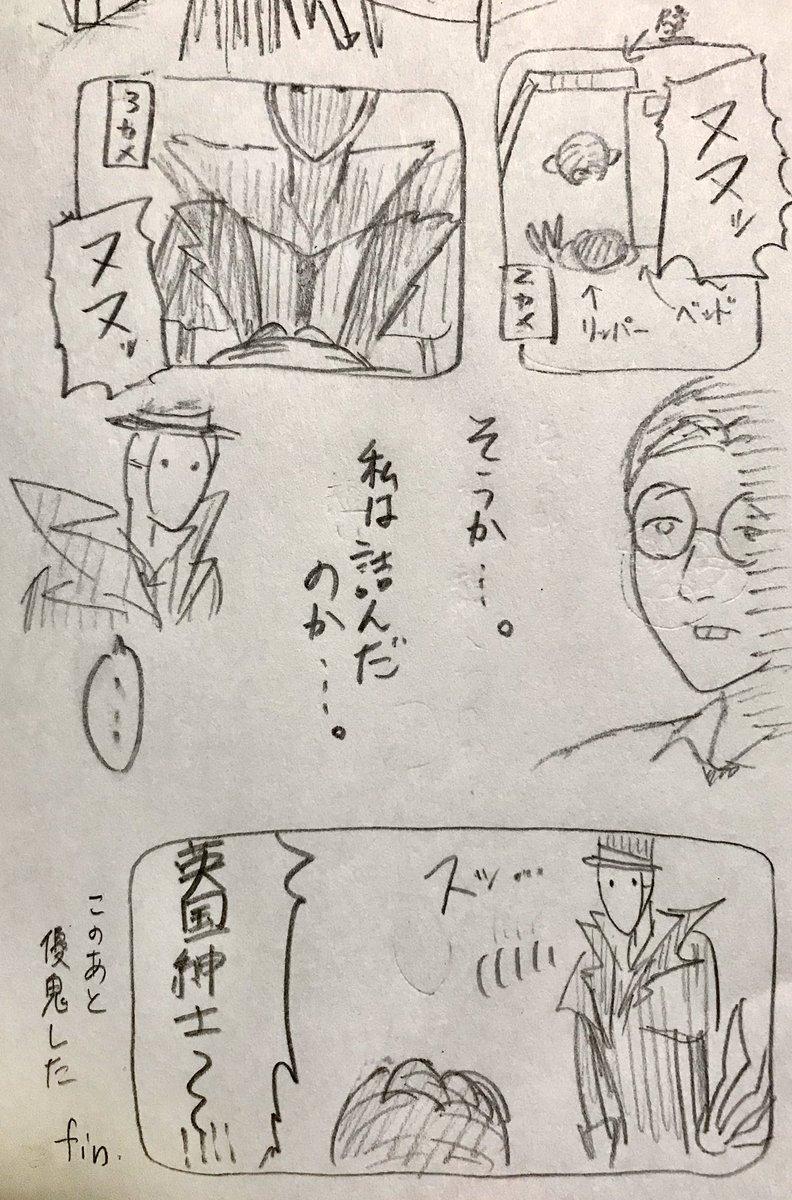 壁
ヌヌッ
2カメ
リッパー
ベッド
3カメ
ヌヌッ
そうか…。
私は詰んだ
のか…。
…
ズッ…
英国紳士〜〜!!!!
このあと
優鬼した
fin.